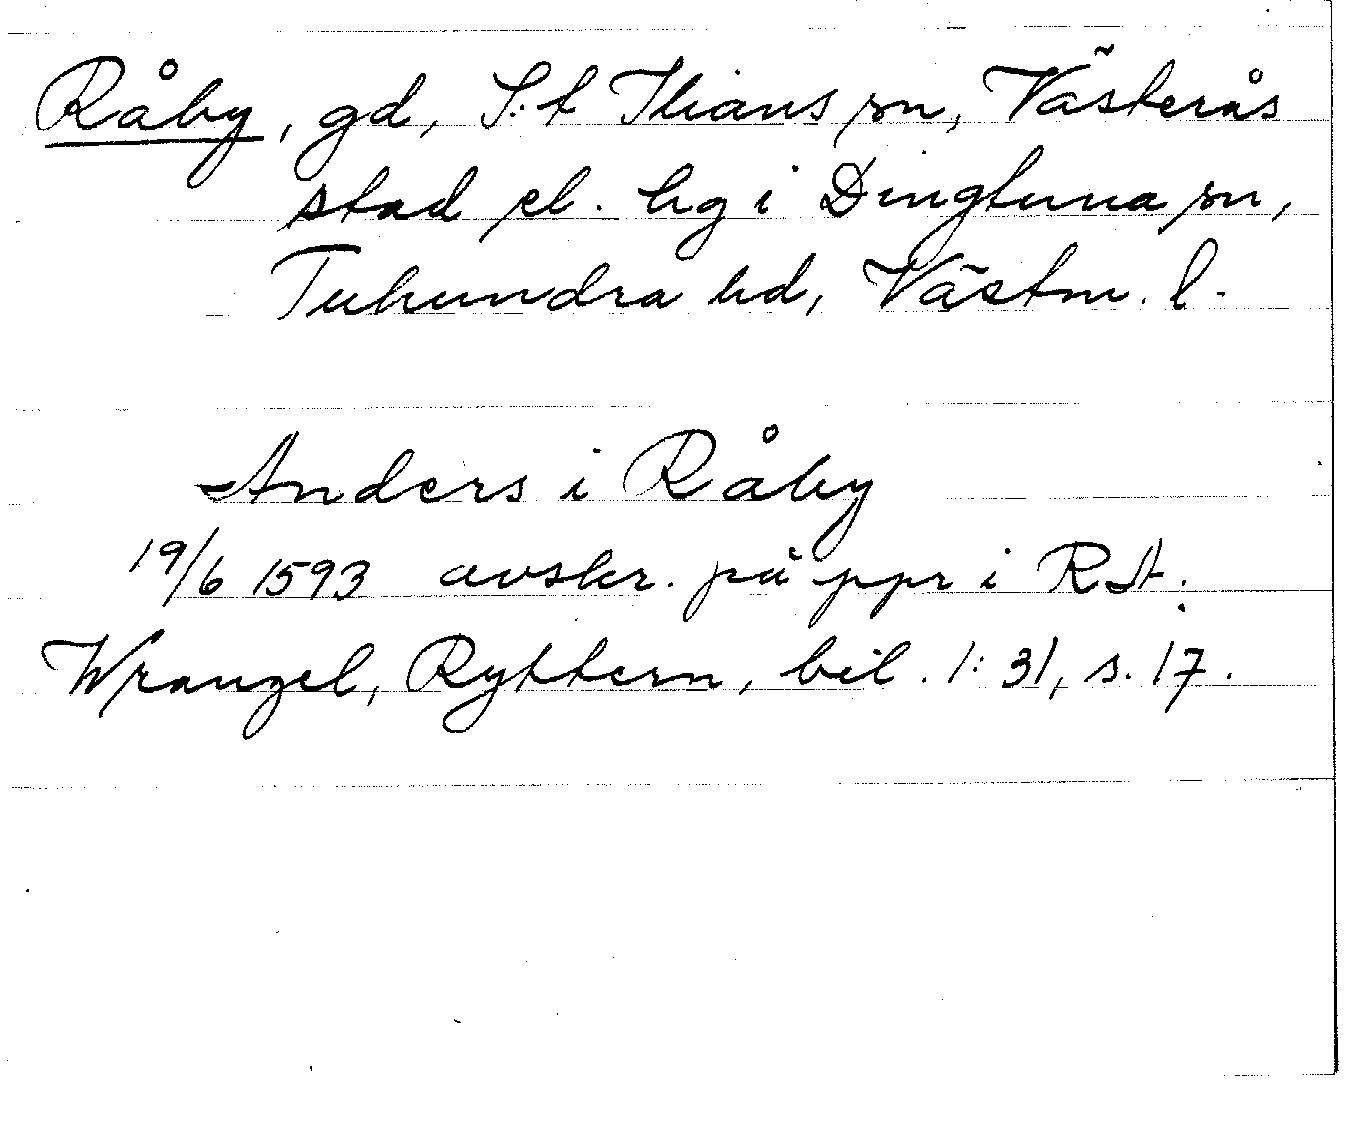 Råby, gd, S:t Ilians sn, Västerås
stad el. hg i Dingtuna sn,
Tuhundra hd, Västm. l.
Anders i Råby
19/6 1593 avskr. på ppr i RA.
Wrangel, Ryttern, bil. 1:31, s. 17.